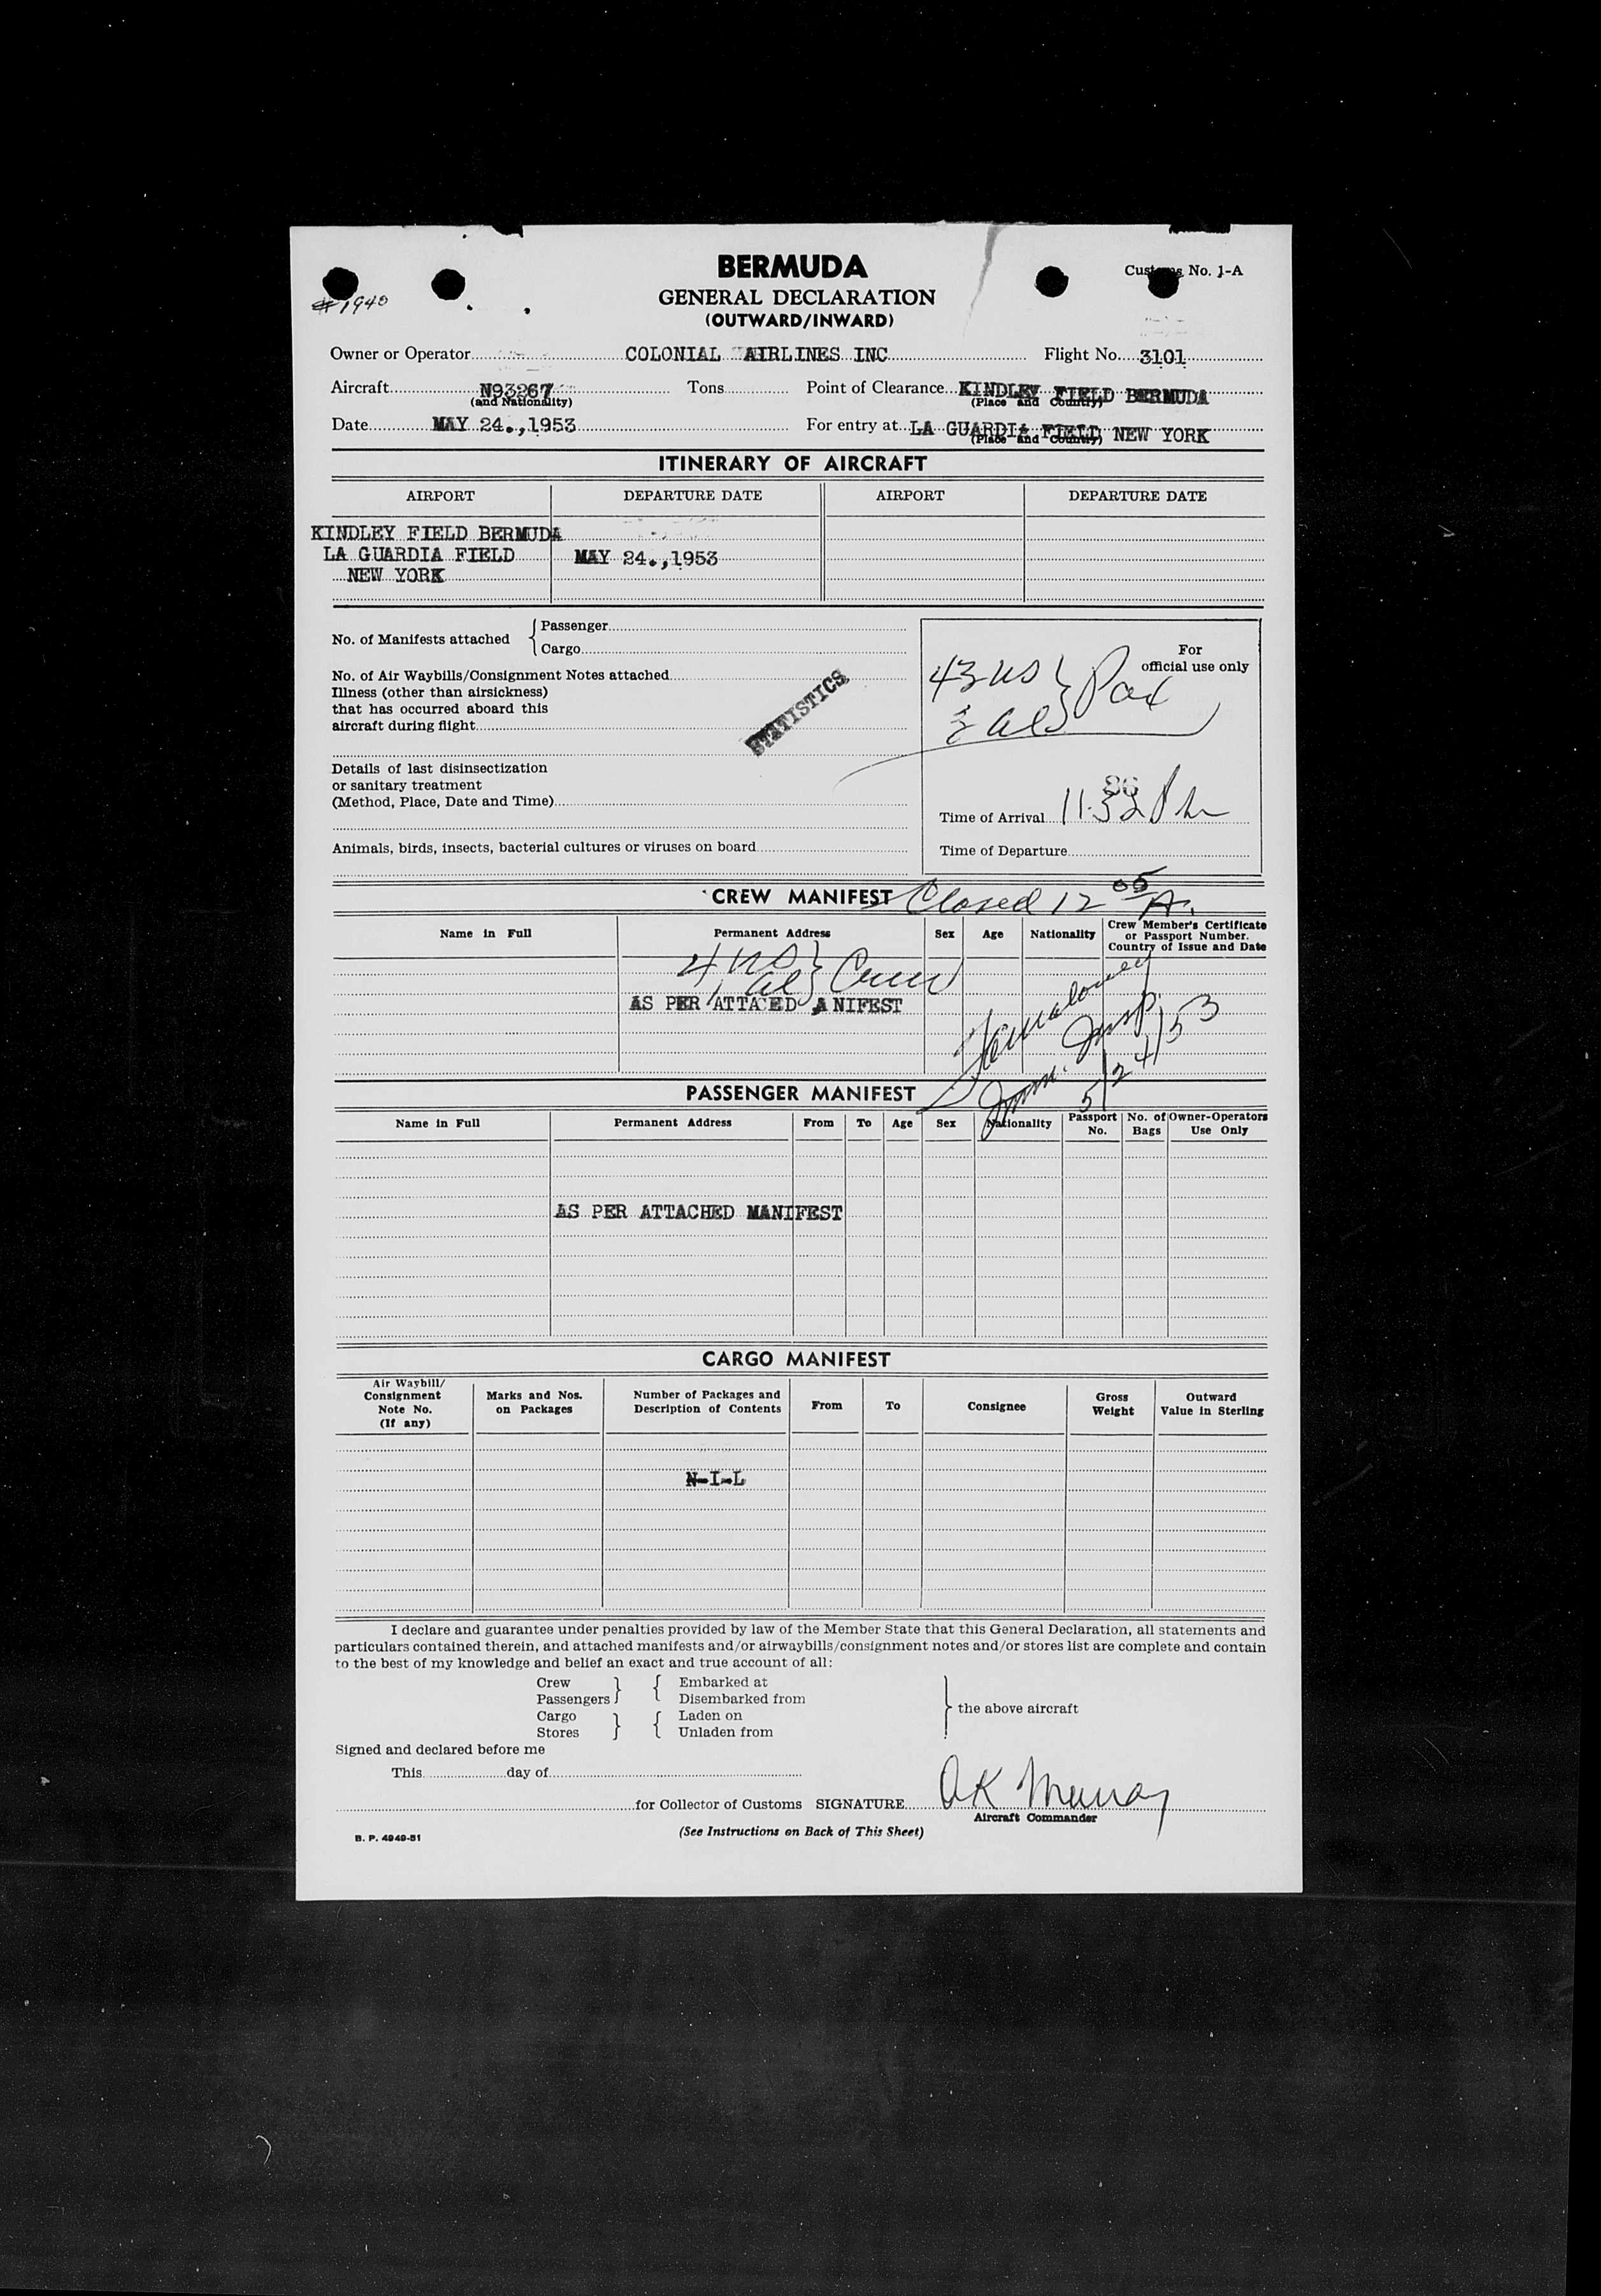 BERMUDA
Customs No. 1-A
# 1940
GENERAL DECLARATION
(OUTWARD/INWARD)
Owner or Operator COLONIAL AIRLINES INC Flight No. 3101
Aircraft N93267 Tons Point of Clearance KINDLEY FIELD BERMUDA
(and Nationality) (Place and Country)
Date MAY 24.,1953 For entry at LA GUARDIA FIELD NEW YORK
(Place and Country)
ITINERARY OF AIRCRAFT
AIRPORT DEPARTURE DATE AIRPORT DEPARTURE DATE
KINDLEY FIELD BERMUDA
LA GUARDIA FIELD MAY 24.,1953
NEW YORK
No. of Manifests attached { Passenger
Cargo
No. of Air Waybills/Consignment Notes attached
Illness (other than airsickness)
that has occurred aboard this
aircraft during flight
STATISTICS
Details of last disinsectization
or sanitary treatment
(Method, Place, Date and Time)
Animals, birds, insects, bacterial cultures or viruses on board
For
official use only
43 US } Pax
Al
Time of Arrival 11:52 Pm
Time of Departure
CREW MANIFEST Closed 12 05 A.
Name in Full Permanent Address Sex Age Nationality Crew Member's Certificate
or Passport Number.
Country of Issue and Date
4 US } Crew
1 Al
AS PER ATTACED ANIFEST
Imm. Insp
5/24/53
PASSENGER MANIFEST
Name in Full Permanent Address From To Age Sex Nationality Passport No. No. of Bags Owner-Operators Use Only
AS PER ATTACHED MANIFEST
CARGO MANIFEST
Air Waybill/
Consignment
Note No.
(If any)
Marks and Nos.
on Packages
Number of Packages and
Description of Contents
From To Consignee
Gross
Weight
Outward
Value in Sterling
N-I-L
I declare and guarantee under penalties provided by law of the Member State that this General Declaration, all statements and
particulars contained therein, and attached manifests and/or airwaybills/consignment notes and/or stores list are complete and contain
to the best of my knowledge and belief an exact and true account of all:
Crew } { Embarked at
Passengers Disembarked from
Cargo } { Laden on
Stores Unladen from
} the above aircraft
Signed and declared before me
This day of
for Collector of Customs SIGNATURE OK Murray
Aircraft Commander
B. P. 4949-51
(See Instructions on Back of This Sheet)